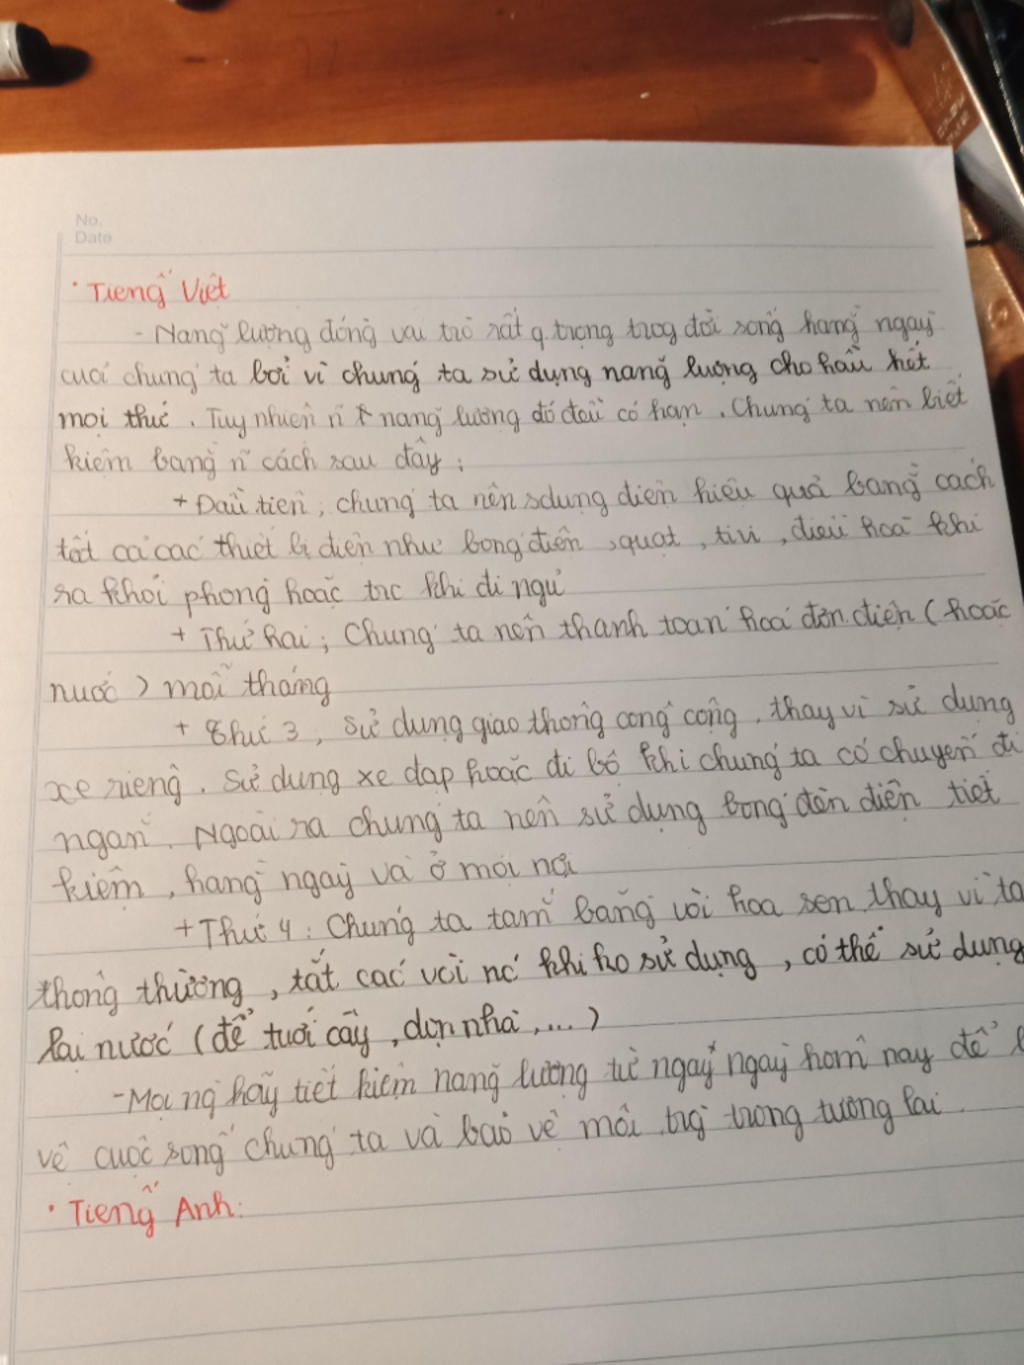 No.
Date
· Tiếng Việt
- Năng lượng đóng vai trò rất q.trọng trog đời sống hằng ngày
của chúng ta bởi vì chúng ta sử dụng năng lượng cho hầu hết
mọi thứ. Tuy nhiên n~ năng lượng đó đều có hạn. Chúng ta nên biết
kiệm bằng n~ cách sau đây:
+ Đầu tiên, chúng ta nên sdụng điện hiệu quả bằng cách
tắt cả các thiết bị điện như bóng điện, quạt, tivi, điều hoà khi
ra khỏi phòng hoặc trc khi đi ngủ
+ Thứ hai; Chúng ta nên thanh toán hoá đơn điện (hoặc
nước) mỗi tháng
+ Thứ 3, sử dụng giao thông công cộng, thay vì sử dụng
xe riêng. Sử dụng xe đạp hoặc đi bộ khi chúng ta có chuyến đi
ngắn. Ngoài ra chúng ta nên sử dụng bóng đèn điện tiết
kiệm, hằng ngày và ở mọi nơi
+ Thứ 4: Chúng ta tắm bằng vòi hoa sen thay vì ta
thông thường, tắt các vòi nc khi ko sử dụng, có thể sử dụng
lại nước (để tưới cây, dọn nhà,...)
- Mọi ng hãy tiết kiệm năng lượng từ ngay ngày hôm nay để
vệ cuộc sống chúng ta và bảo vệ môi trg trong tương lai.
· Tiếng Anh: